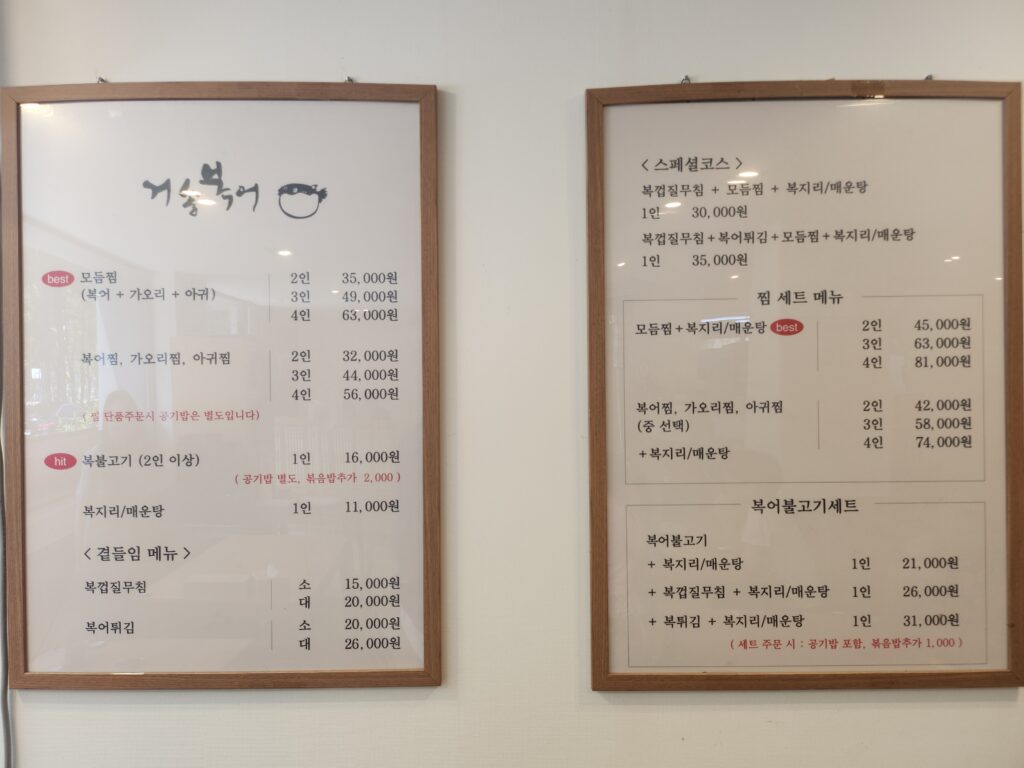 거송복어
best 모듬찜 2인 35,000원
(복어 + 가오리 + 아귀) 3인 49,000원
4인 63,000원
복어찜, 가오리찜, 아귀찜 2인 32,000원
3인 44,000원
4인 56,000원
( 찜 단품주문시 공기밥은 별도입니다)
hit 복불고기 (2인 이상) 1인 16,000원
( 공기밥 별도, 볶음밥추가 2,000 )
복지리/매운탕 1인 11,000원
< 곁들임 메뉴 >
복껍질무침 소 15,000원
대 20,000원
복어튀김 소 20,000원
대 26,000원
< 스페셜코스 >
복껍질무침 + 모듬찜 + 복지리/매운탕
1인 30,000원
복껍질무침+복어튀김+모듬찜+복지리/매운탕
1인 35,000원
찜 세트 메뉴
모듬찜+복지리/매운탕 best 2인 45,000원
3인 63,000원
4인 81,000원
복어찜, 가오리찜, 아귀찜 2인 42,000원
(중 선택) 3인 58,000원
+복지리/매운탕 4인 74,000원
복어불고기세트
복어불고기
+ 복지리/매운탕 1인 21,000원
+ 복껍질무침 + 복지리/매운탕 1인 26,000원
+ 복튀김 + 복지리/매운탕 1인 31,000원
( 세트 주문 시 : 공기밥 포함, 볶음밥추가 1,000 )